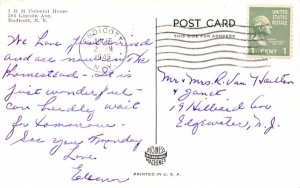 I B M Colonial Home
Endicott, N. Y.
ENDICOTT
N.Y.
POST CARD
THIS SIDE FOR ADDRESS
UNITED STATES
POSTAGE
1 CENT 1
We have just arrived
and are now in The
Homestead - It is
just wonderful -
can hardly wait
for tomorrow -
See you Monday
Love
Eleanor
Mr & Mrs. R. Van Houten
& Janet
19 Hilliard Ave
Edgewater, N.J.
PRINTED IN U. S. A.